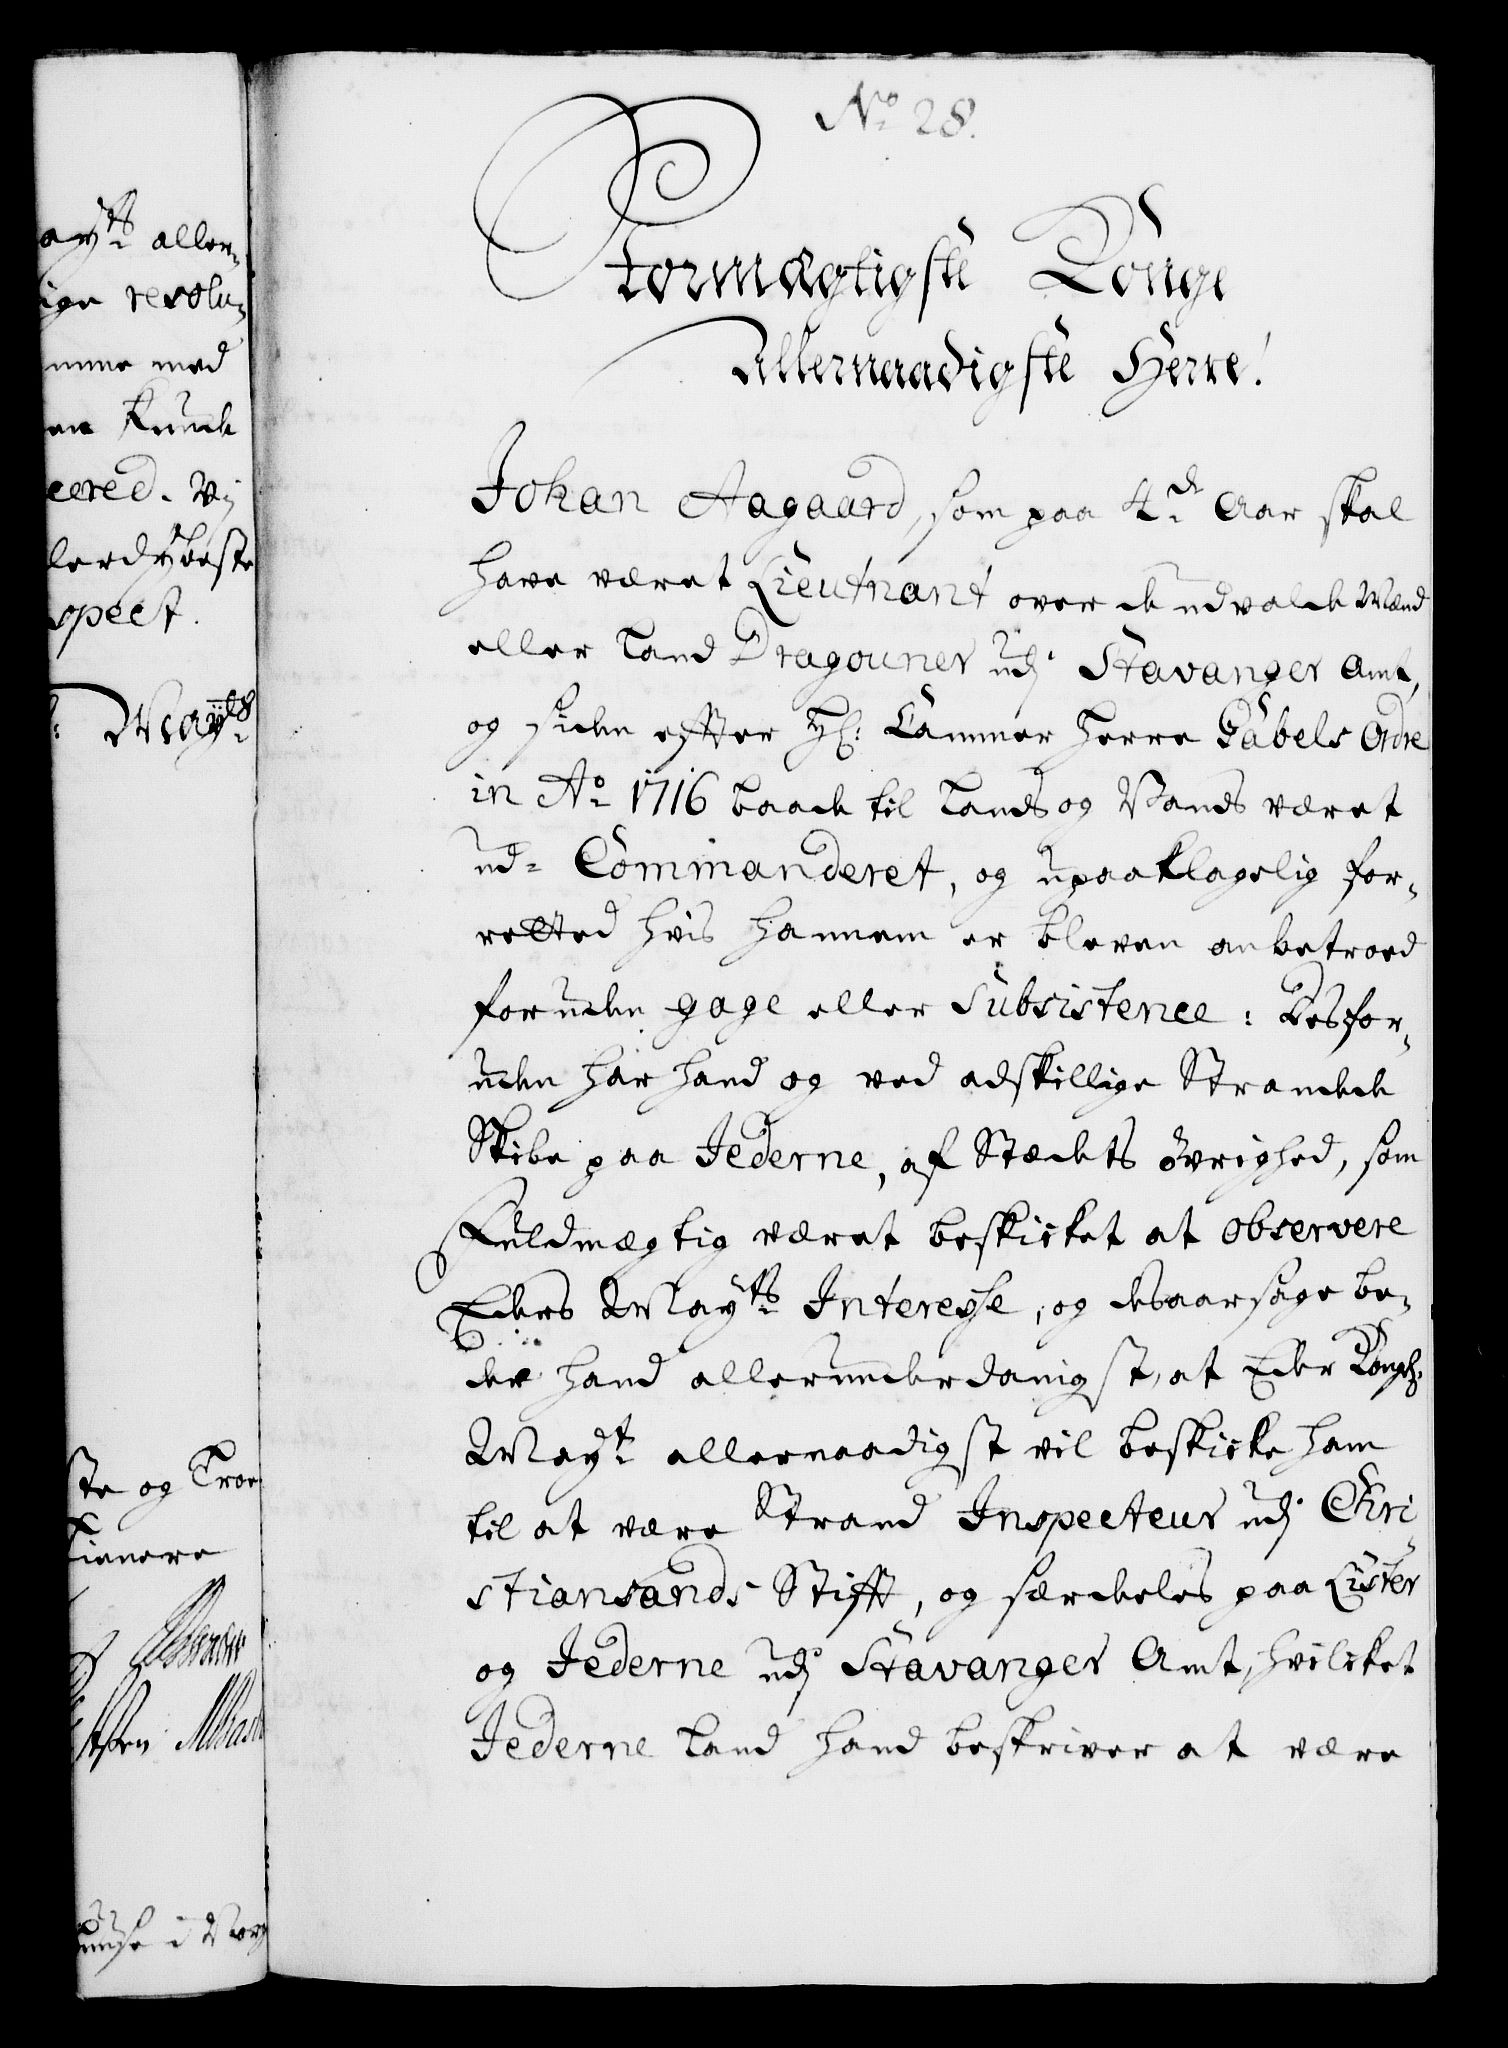 ayts aller-
ige resolu-
mme med
en kunde
cered. Vj
lerdybeste
spect.
Mayts
No 28.
Stormægtigste Konge
Allernaadigste Herre!
Johan Aagaard, som paa 4de Aar skal
have været Lieutnant over de udvalde Mænd
eller Land Dragouner udj Stavanger Amt,
og siden effter Hl: Cammer Herre Gabels Odre
in Ao 1716 baade til Lands og Vands været
ud- Commanderet, og upaaklagelig for-
retted hvis hannem er bleven anbetroed
foruden gage eller Subsistence: Desfor-
uden har hand og ved adskillige Strandede
Skibe paa Jederne, af Stædets øvrighed, som
Fuldmægtig været beskicket at observere
Eders Mayts Interesse, og desaarsage be-
der hand allerunderdanigst, at Eder Kongl:
Mayt allernaadigst vil beskicke ham
til at være Strand Inspecteur udj Chri-
stiansands Stifft, og særdeles paa Lister
og Jederne udj Stavanger Amt, hvilcket
Jederne Land hand beskriver at være
ste og Troe
tienere
i Norg